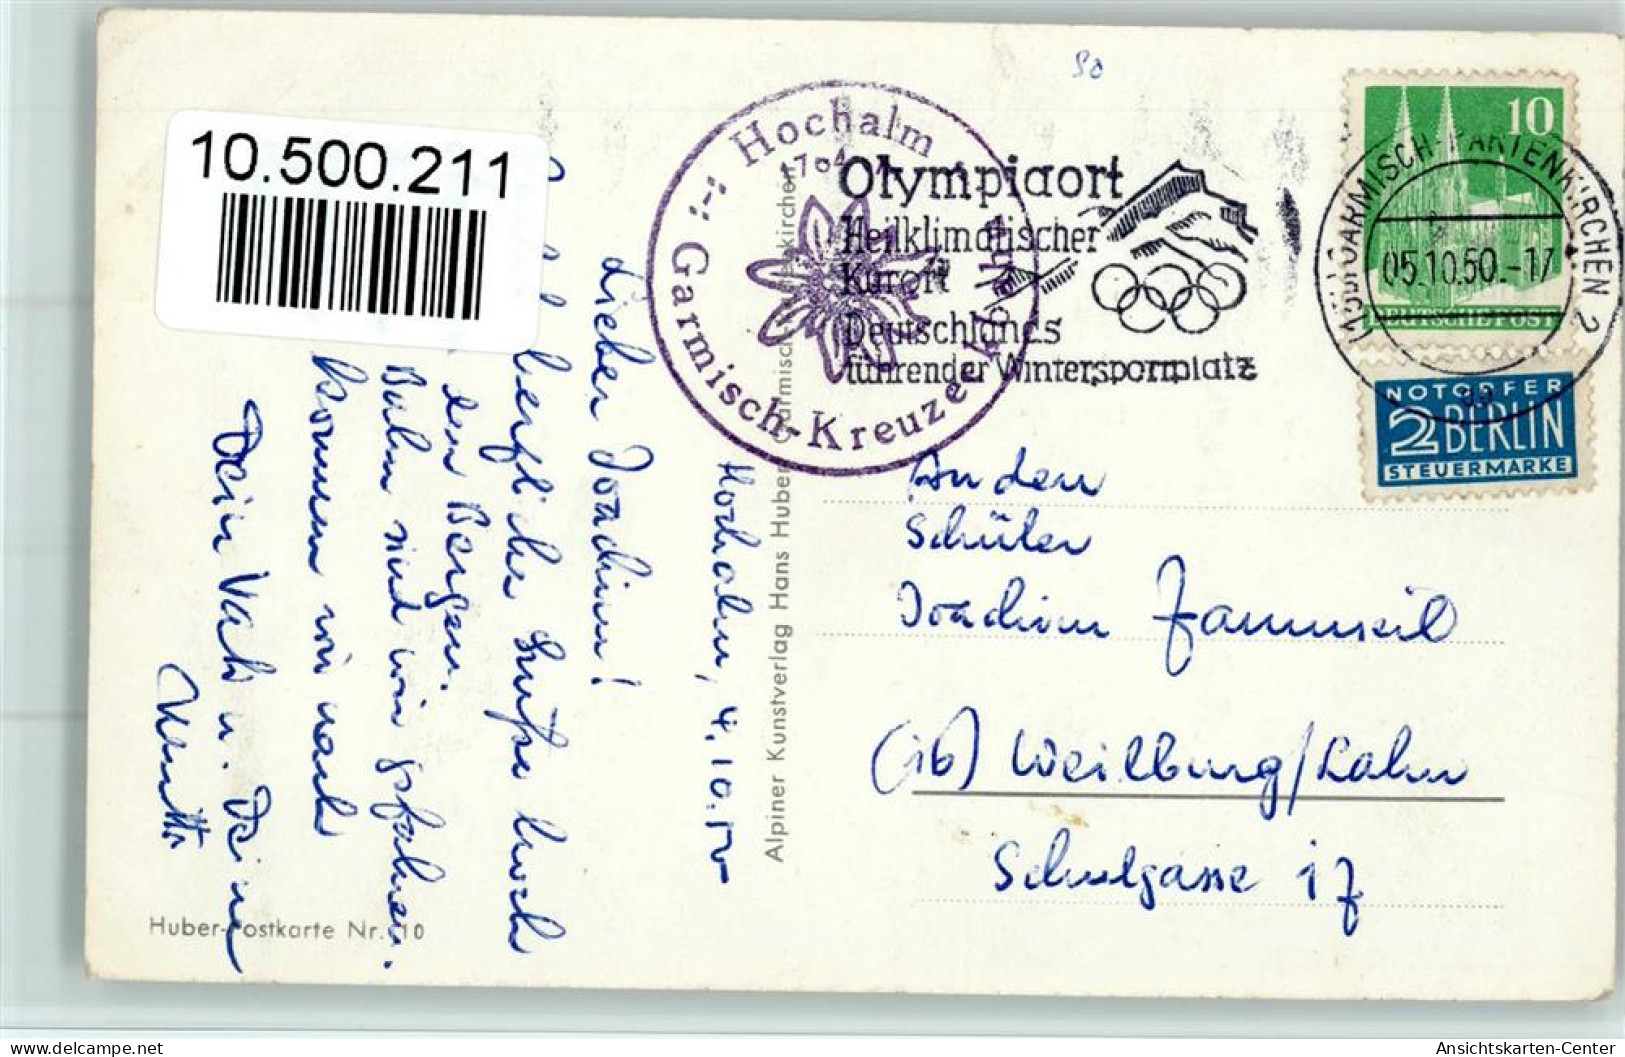 10.500.211
50
Hochalm
1704
Garmisch-Kreuzeckbahn
Olympiaort
Heilklimatischer
Kurort
Deutschlands
führender Wintersportplatz
GARMISCH-PARTENKIRCHEN 2
05.10.50.-17
10
DEUTSCHE POST
NOTOPFER
2 BERLIN
STEUERMARKE
Hochalm, 4.10.50
Lieber Joachim!
herzliche Grüße hoch
den Bergen.
Bahn sind wir gefahren.
Kommen wir nach
Dein Vati u. Deine
Mutti
Alpiner Kunstverlag Hans Huber Garmisch-Partenkirchen
An den
Schüler
Joachim
(16) Weilburg/Lahn
Schulgasse 17
Huber-Postkarte Nr. 10
www.delcampe.net
Ansichtskarten-Center